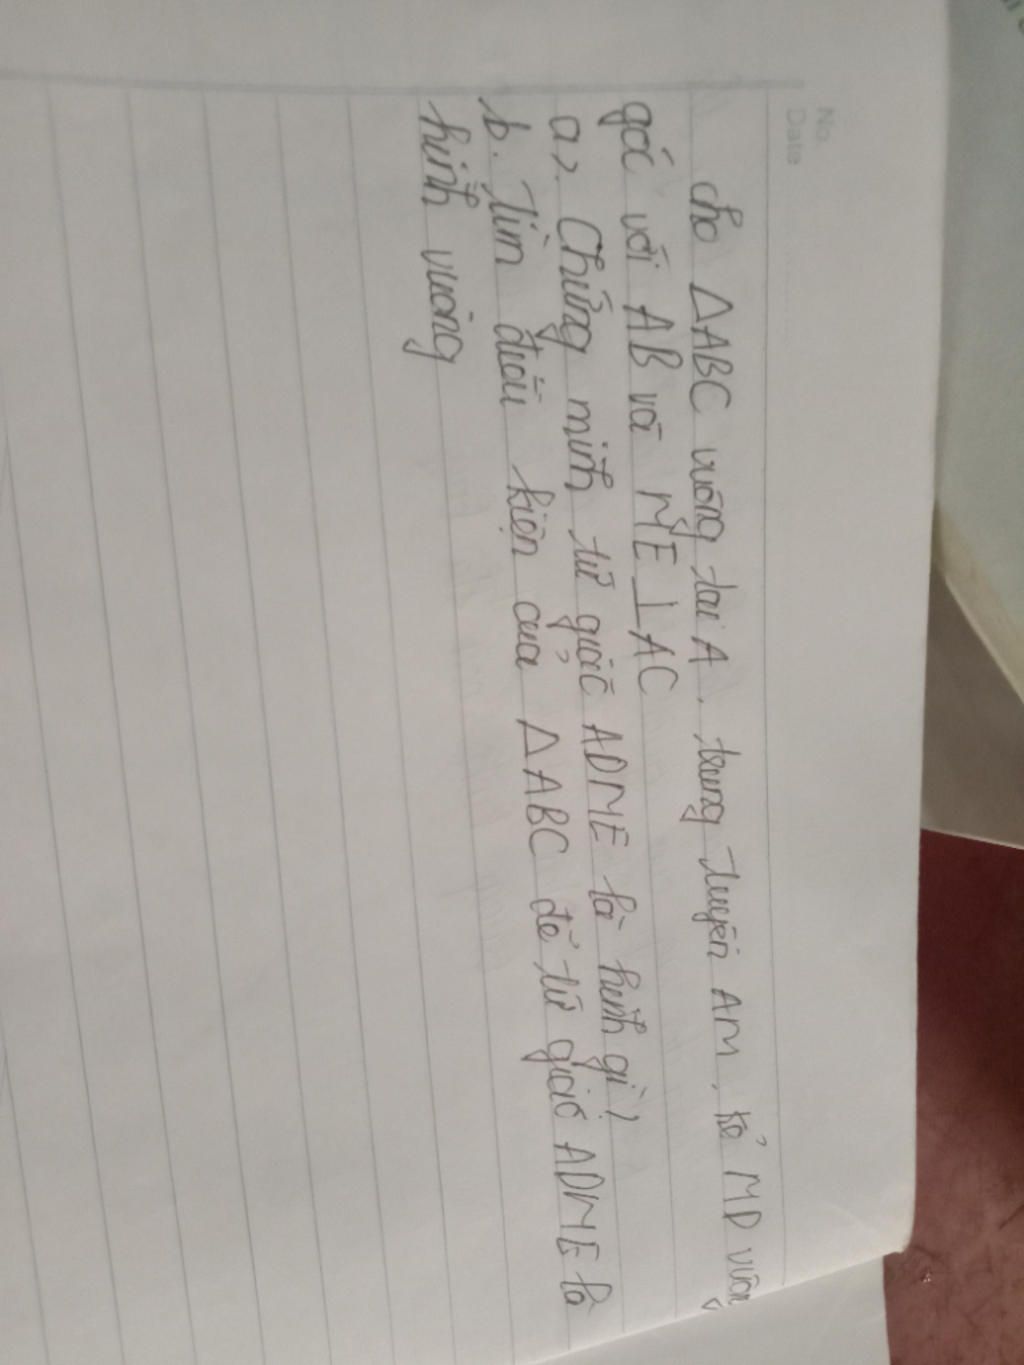 No.
Date
cho ΔABC vuông tại A, trung tuyến AM, kẻ MD vuông
góc với AB và ME ⊥ AC
a>. Chứng minh tứ giác ADME là hình gì?
b. Tìm điều kiện của ΔABC để tứ giác ADME là
hình vuông